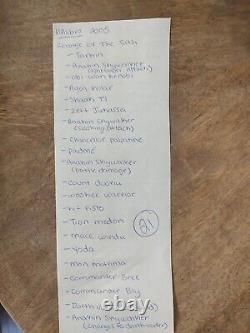 Hasbro 2005
Revenge Of The Sith
- Tarkin
- Anakin Skywalker
(lightsaber attack)
- obi wan kenobi
- Agen Kolar
- Shaak Ti
- Zett Jukassa
- Anakin Skywalker
(slashing attack)
- Chancellor palpatine
- padmé
- Anakin Skywalker
(battle damage)
- Count dooku
- wookiee warrior
- kit fisto
- Tion medon
- mace windu
- yoda
- mon mothma
- Commander Bree
- Commander Bly
- Darth
- Anakin Skywalker
(changes to darth vader)
21